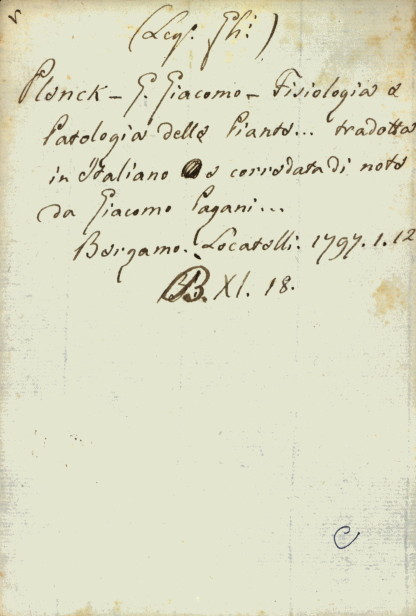 (Leg. Ghi:)
Plenck - G. Giacomo - Fisiologia e
Patologia delle Piante... tradotta
in Italiano e corredata di note
da Giacomo Pagani...
Bergamo. Locatelli. 1797. 1. 12
B. XI. 18.
C